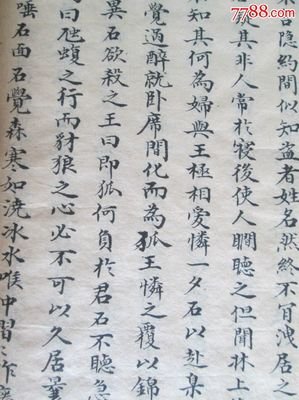 7788.com
隱約間似知盜者姓名然終不肯洩居之
其非人常於寢後使人瞷聽之但聞牀上
知其何為婦與王極相愛憐一夕石以赴臬
覺過醉就臥席間化而為狐王憐之覆以錦
異石欲殺之王曰即狐何負於君石不聽急
曰虺蝮之行而豺狼之心必不可以久居曩
唾石面石覺森寒如澆冰水喉中習々作癢